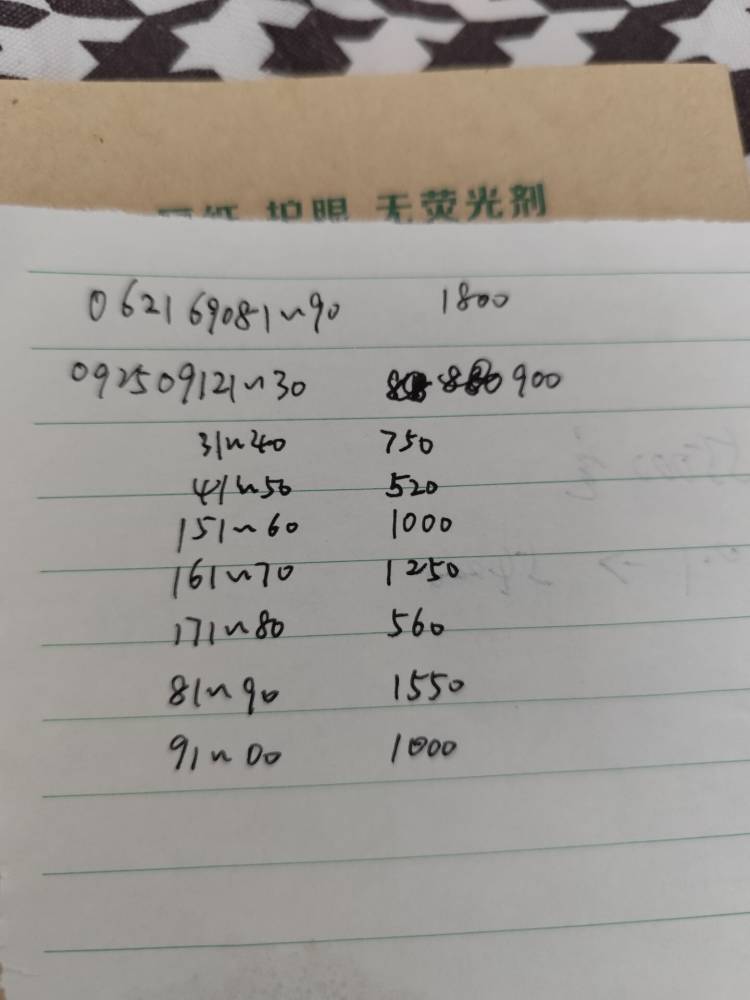 护眼 无荧光剂
062169081~90 1800
092509121~30 900
31~40 750
41~50 520
151~60 1000
161~70 1250
171~80 560
81~90 1550
91~00 1000